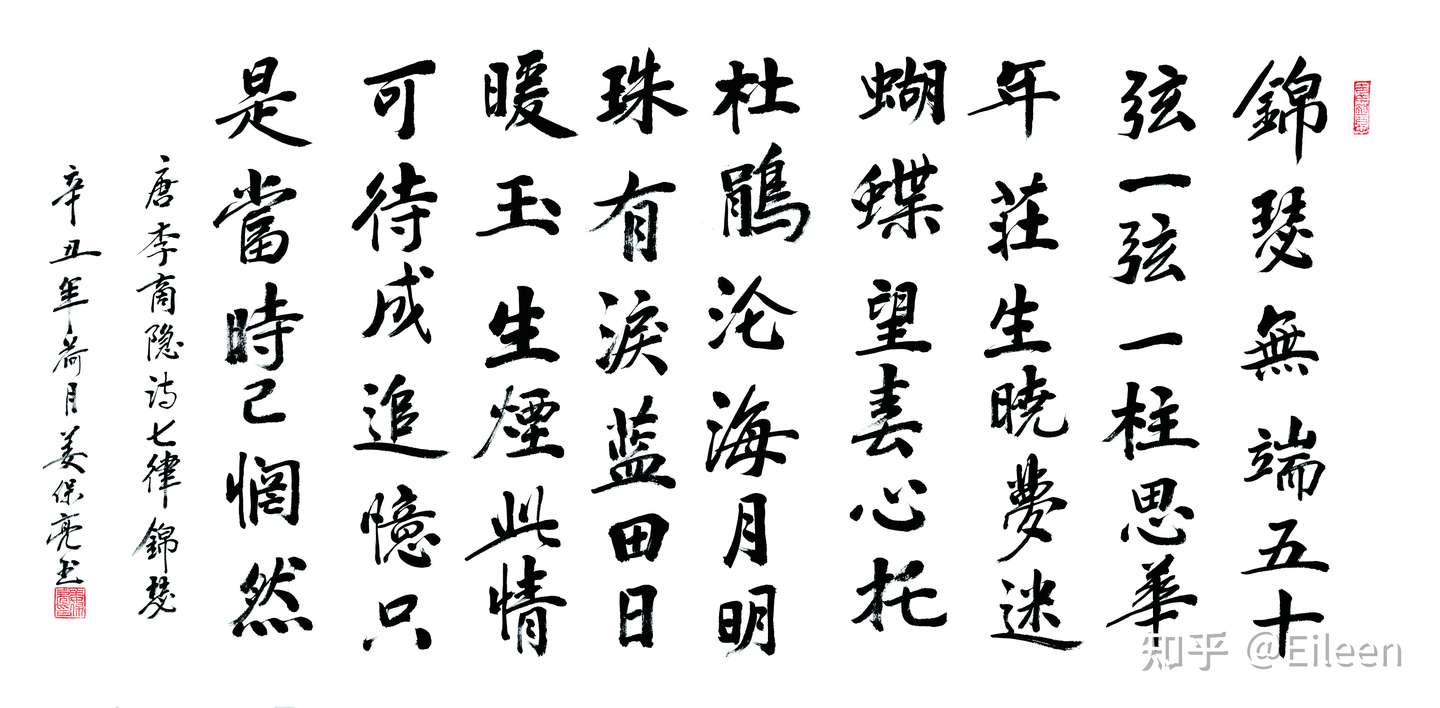 錦瑟無端五十
弦一弦一柱思華
年莊生晓夢迷
蝴蝶望春心托
杜鹃沦海月明
珠有淚蓝田日
暖玉生煙此情
可待成追憶只
是當時已惘然
唐李商隐诗七律錦瑟
辛丑年荷月姜保亮书
知乎 @Eileen